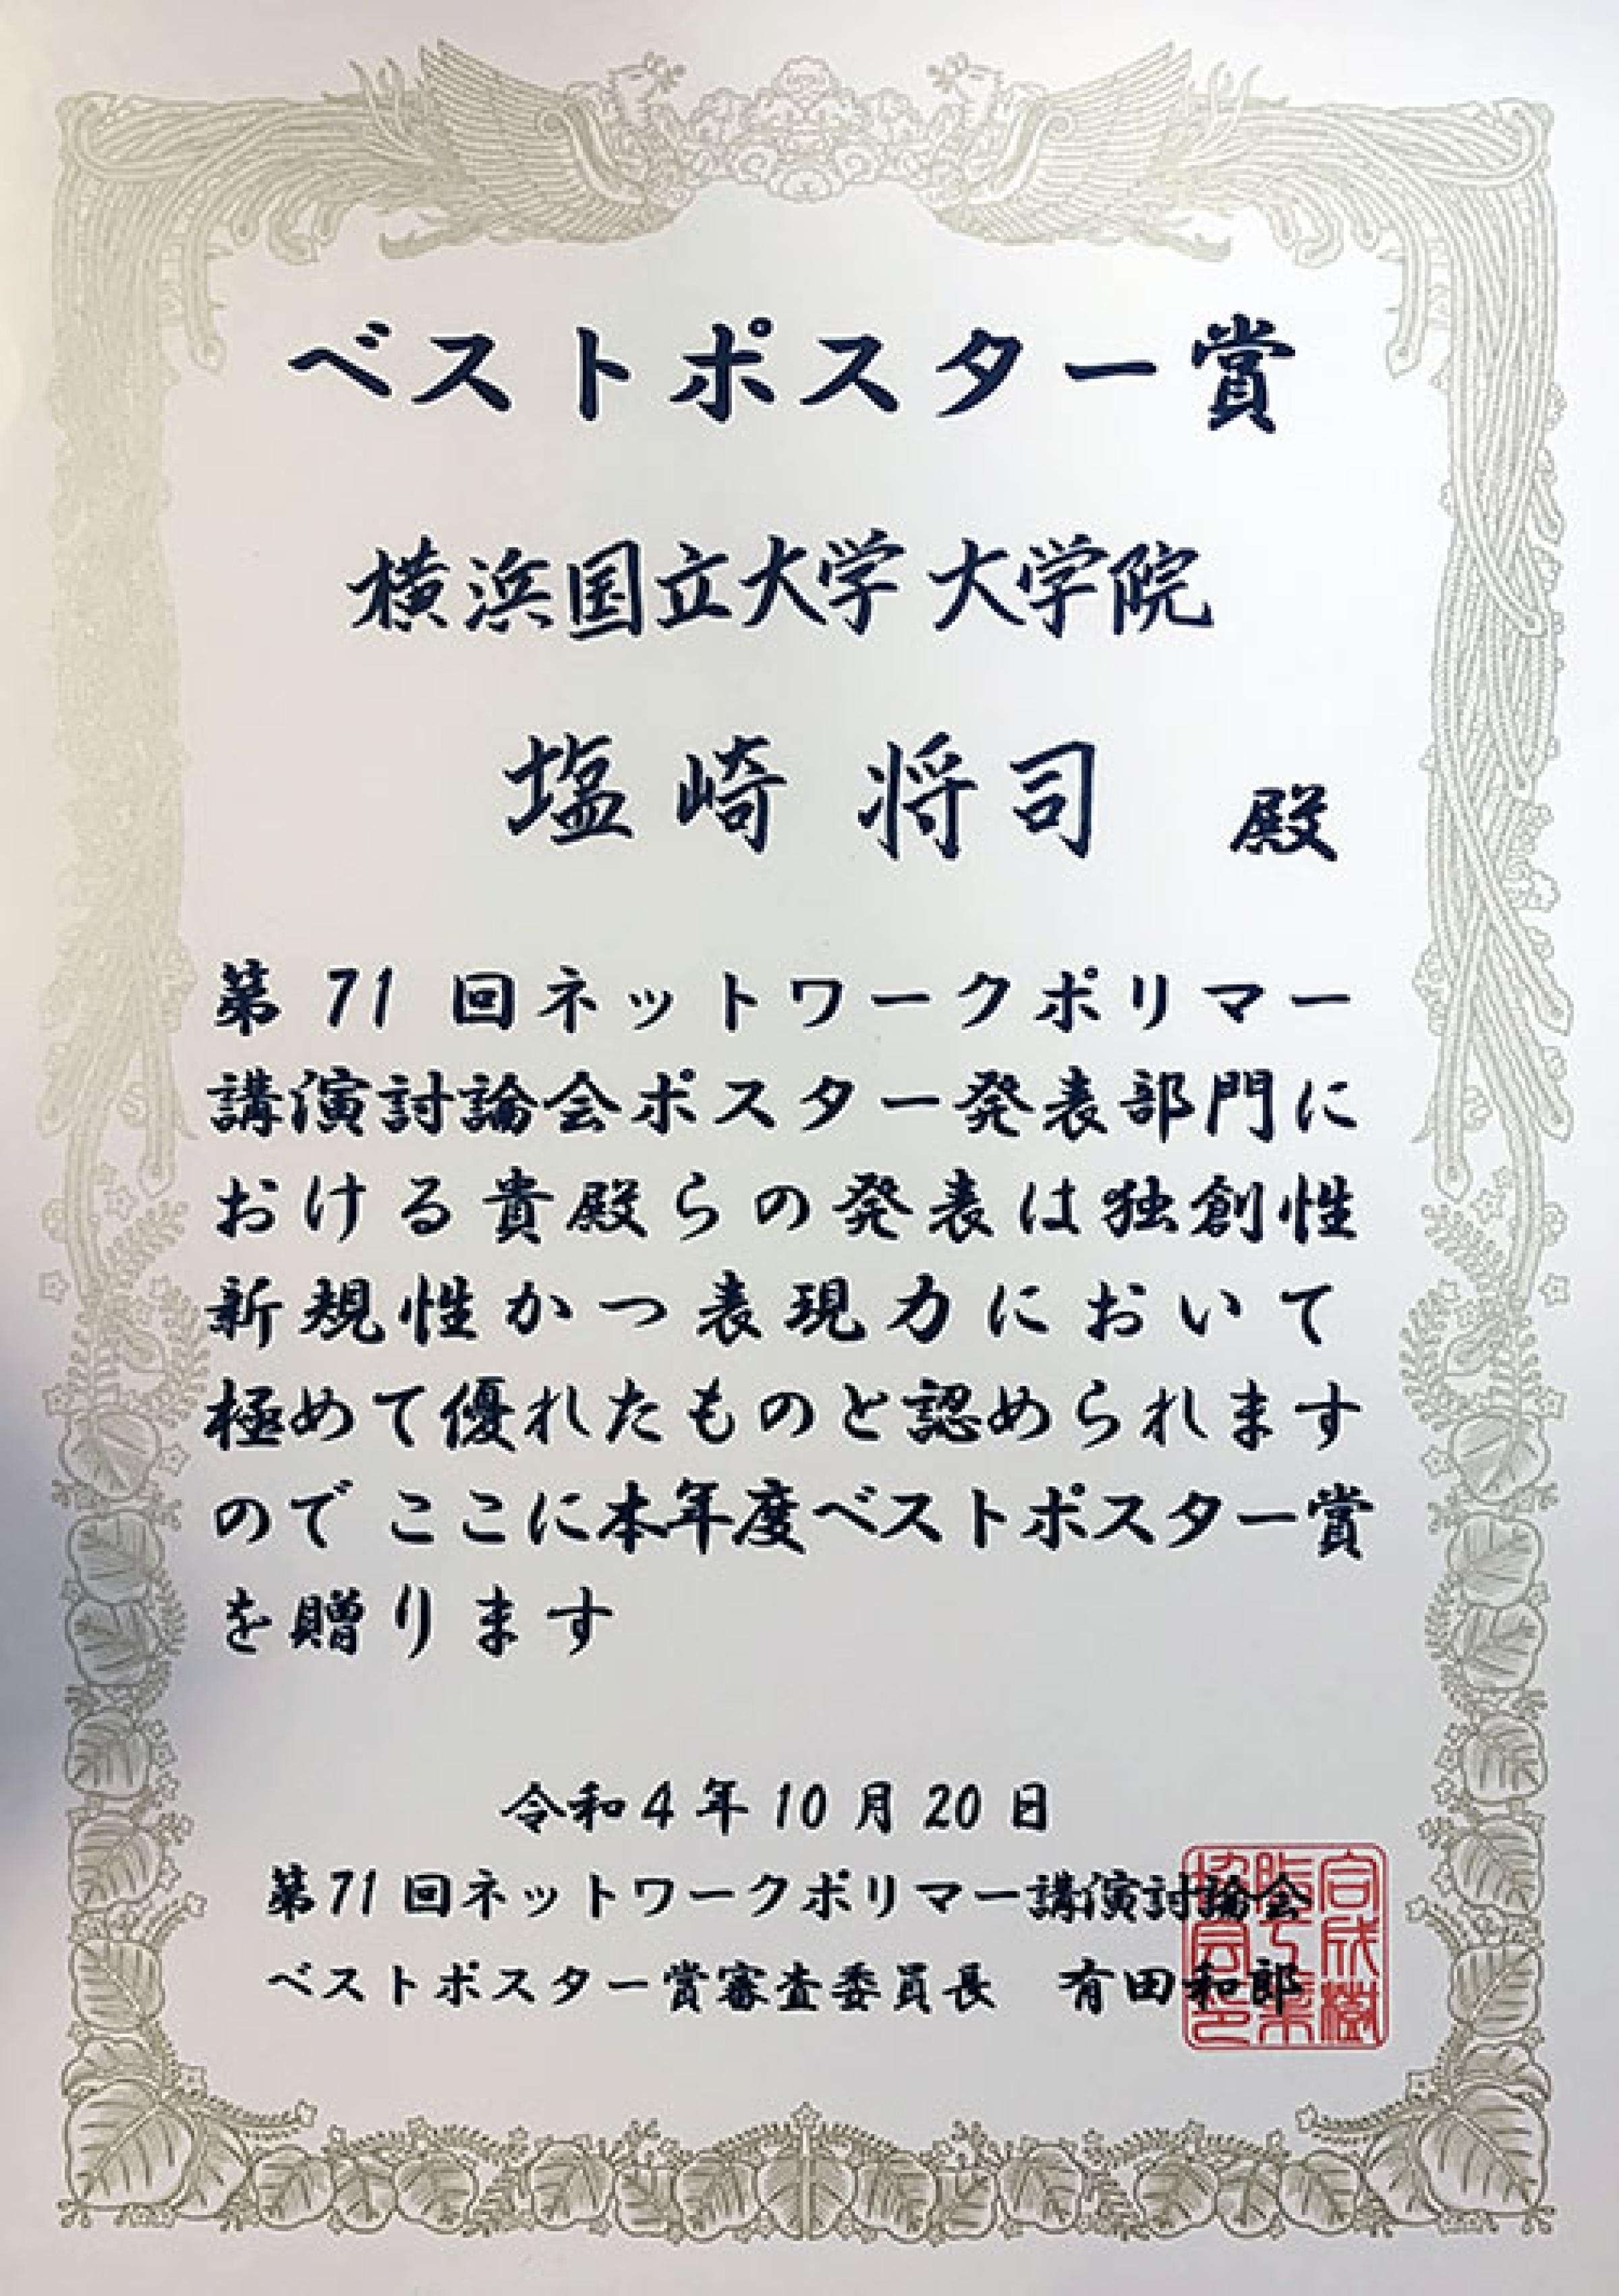 ベストポスター賞
横浜国立大学 大学院
塩崎 将司 殿
第 71 回ネットワークポリマー
講演討論会ポスター発表部門に
おける貴殿らの発表は独創性
新規性かつ表現力において
極めて優れたものと認められます
ので ここに本年度ベストポスター賞
を贈ります
令和4年10月20日
第71回ネットワークポリマー講演討論会
ベストポスター賞審査委員長 有田和郎
合成樹
脂工業
協会印